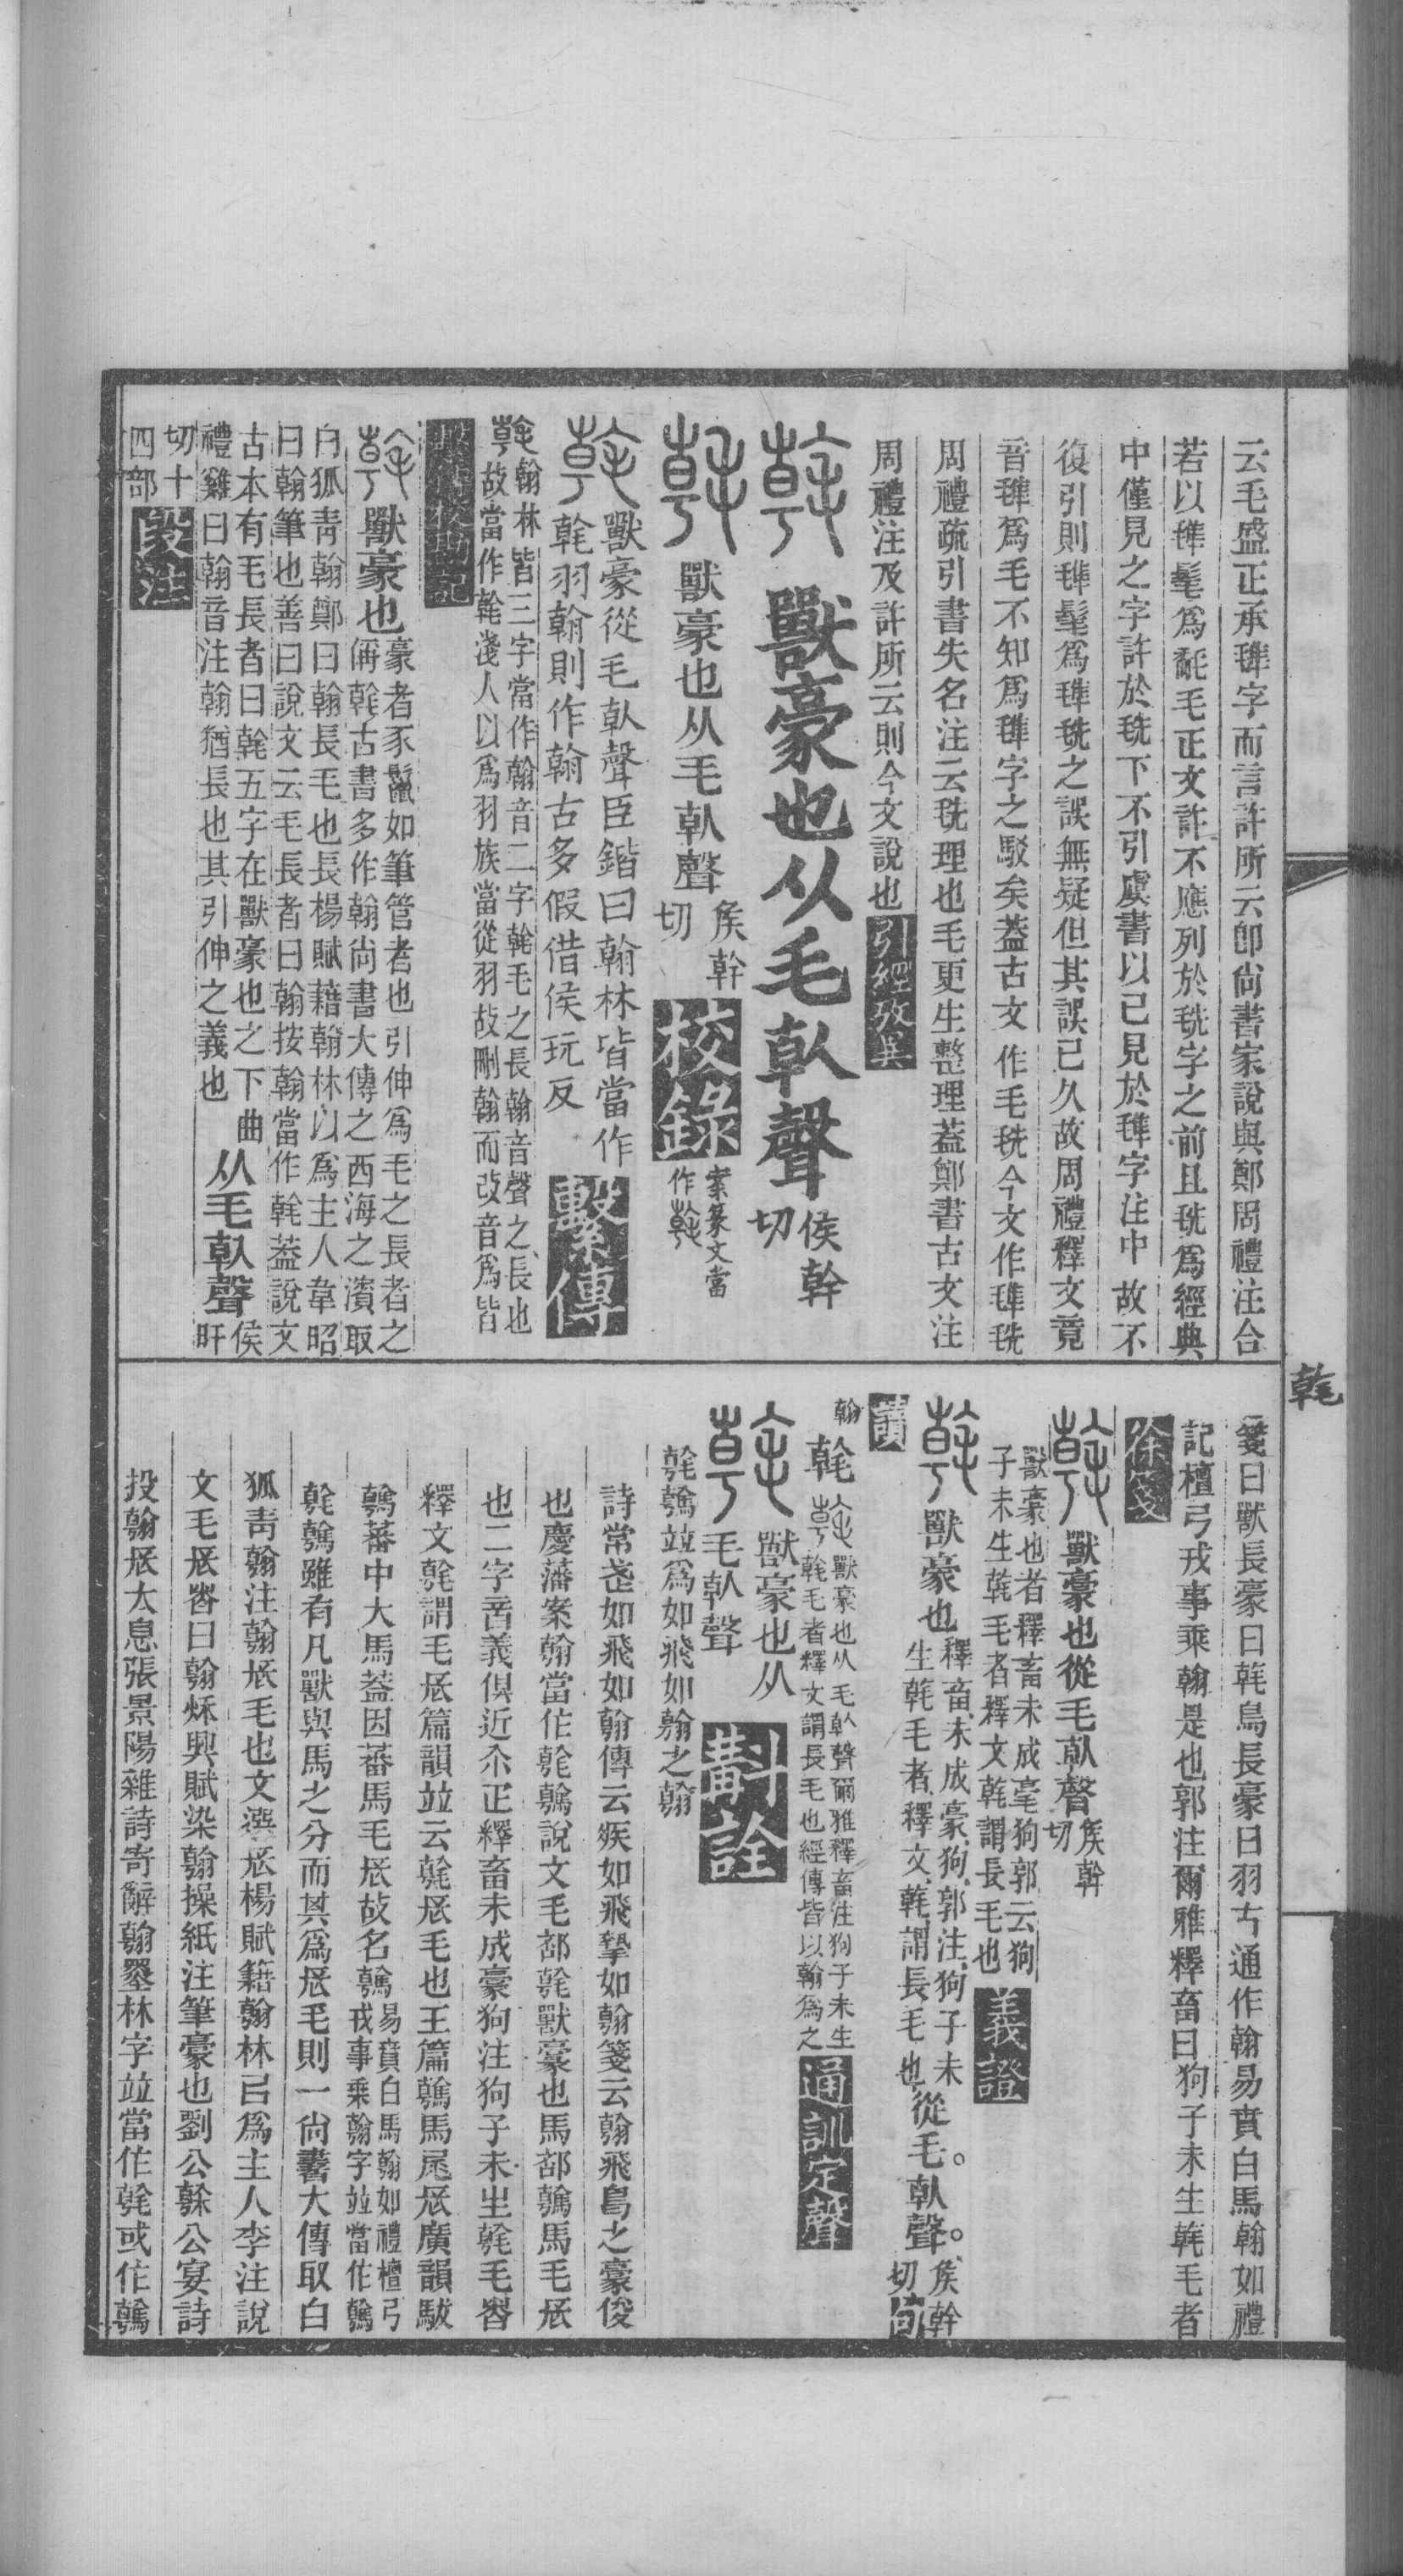 云毛盛正承㲠字而言許所云卽尚書家說與鄭周禮注合
若以㲠髦爲毛正文許不應列於毨字之前且毨爲經典
中僅見之字許於毨下不引虞書以已見於㲠字注中故不
復引則㲠髦爲㲠毨之誤無疑但其誤已久故周禮釋文竟
音㲠爲毛不知爲㲠字之駁矣蓋古文作毛毨今文作㲠毨
周禮疏引書失名注云毨理也毛更生整理蓋鄭書古文注
周禮注及許所云則今文說也引經攷異
獸豪也从毛倝聲侯幹切
獸豪也从毛倝聲矦幹切校錄案篆文當作
獸豪從毛倝聲臣鍇曰翰林皆當作
毛羽翰則作翰古多假借侯玩反繫傳
翰林皆三字當作翰音二字毛之長翰音聲之長也
故當作淺人以爲羽族當從羽故刪翰而改音爲皆
獸豪也豪者豕鬣如筆管者也引伸爲毛之長者之
偁古書多作翰尚書大傳之西海之濱取
白狐青翰鄭曰翰長毛也長楊賦藉翰林以爲主人韋昭
曰翰筆也善曰說文云毛長者曰翰按翰當作蓋說文
古本有毛長者曰五字在獸豪也之下曲
禮雞曰翰音注翰猶長也其引伸之義也从毛倝聲侯旰
切十四部段注
笺曰獸長豪曰鳥長豪曰羽古通作翰易賁白馬翰如禮
記檀弓戎事乘翰是也郭注爾雅釋畜曰狗子未生毛者
徐箋
獸豪也從毛倝聲矦幹切
獸豪也者釋畜未成毫狗郭云狗
子未生毛者釋文謂長毛也義證
獸豪也釋畜未成豪狗郭注狗子未
生毛者釋文謂長毛也從毛倝聲矦幹切句讀
翰
獸豪也从毛倝聲爾雅釋畜注狗子未生
毛者釋文謂長毛也經傳皆以翰爲之通訓定聲
獸豪也从
毛倝聲斠詮
竝爲如飛如翰之翰
詩常武如飛如翰傳云疾如飛摯如翰箋云翰飛鳥之豪俊
也慶藩案翰當作說文毛部獸豪也馬部馬毛長
也二字音義俱近尒疋釋畜未成豪狗注狗子未生毛者
釋文謂毛長篇韻竝云長毛也玉篇馬尾長廣韻駊
蕃中大馬蓋因蕃馬毛長故名易賁白馬翰如禮檀弓戎事乘翰字竝當作
雖有凡獸與馬之分而其爲長毛則一尚書大傳取白
狐青翰注翰長毛也文選長楊賦籍翰林㠯爲主人李注說
文毛長者曰翰秋興賦染翰操紙注筆豪也劉公幹公宴詩
投翰長太息張景陽雜詩寄辭翰墨林字竝當作或作